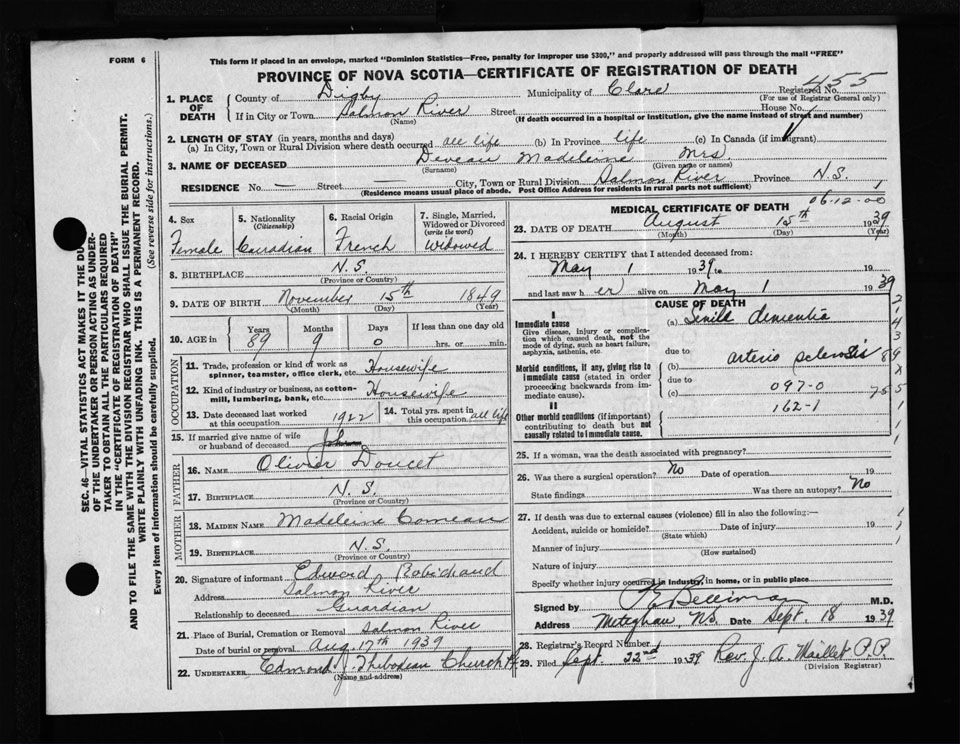 FORM 6
This form if placed in an envelope, marked "Dominion Statistics—Free, penalty for improper use $300," and properly addressed will pass through the mail "FREE"
PROVINCE OF NOVA SCOTIA—CERTIFICATE OF REGISTRATION OF DEATH
Registered No. 455
(For use of Registrar General only)
1. PLACE OF DEATH County of Digby Municipality of Clare
If in City or Town Salmon River Street House No.
(Name) (If death occurred in a hospital or institution, give the name instead of street and number)
2. LENGTH OF STAY (in years, months and days)
(a) In City, Town or Rural Division where death occurred all life (b) In Province life (c) In Canada (if immigrant)
3. NAME OF DECEASED Deveau Madeleine Mrs.
(Surname) (Given name or names)
RESIDENCE No. — Street — City, Town or Rural Division Salmon River Province N.S.
(Residence means usual place of abode. Post Office Address for residents in rural parts not sufficient)
SEC. 46—VITAL STATISTICS ACT MAKES IT THE DUTY
OF THE UNDERTAKER OR PERSON ACTING AS UNDER-
TAKER TO OBTAIN ALL THE PARTICULARS REQUIRED
IN THE "CERTIFICATE OF REGISTRATION OF DEATH"
AND TO FILE THE SAME WITH THE DIVISION REGISTRAR WHO SHALL ISSUE THE BURIAL PERMIT.
WRITE PLAINLY WITH UNFADING INK. THIS IS A PERMANENT RECORD.
Every item of Information should be carefully supplied. (See reverse side for instructions.)
4. Sex
Female
5. Nationality (Citizenship)
Canadian
6. Racial Origin
French
7. Single, Married, Widowed or Divorced (write the word)
Widowed
8. BIRTHPLACE N.S.
(Province or Country)
9. DATE OF BIRTH November 15th 1849
(Month) (Day) (Year)
10. AGE in Years Months Days If less than one day old
89 9 0 hrs. or min.
OCCUPATION
11. Trade, profession or kind of work as spinner, teamster, office clerk, etc. Housewife
12. Kind of industry or business, as cotton-mill, lumbering, bank, etc. Housewife
13. Date deceased last worked at this occupation 1922
14. Total yrs. spent in this occupation all life
15. If married give name of wife or husband of deceased
FATHER
16. NAME Olivier Doucet
17. BIRTHPLACE N.S.
(Province or Country)
MOTHER
18. MAIDEN NAME Madeleine Comeau
19. BIRTHPLACE N.S.
(Province or Country)
20. Signature of informant Edward Robichaud
Address Salmon River
Relationship to deceased Guardian
21. Place of Burial, Cremation or Removal Salmon River
Date of burial or removal Aug. 17th 1939
22. UNDERTAKER Edmond J. Thibodeau Church Pt
(Name and address)
MEDICAL CERTIFICATE OF DEATH
06-12-00
23. DATE OF DEATH August 15th 1939
(Month) (Day) (Year)
24. I HEREBY CERTIFY that I attended deceased from:
May 1 1939 to 19
and last saw her alive on May 1 1939
CAUSE OF DEATH
I
Immediate cause
Give disease, injury or complication which caused death, not the mode of dying, such as heart failure, asphyxia, asthenia, etc.
(a) Senile dementia
due to
Morbid conditions, if any, giving rise to immediate cause (stated in order proceeding backwards from immediate cause).
(b) arterio sclerosis
due to
(c) 097-0
162-1
II
Other morbid conditions (if important) contributing to death but not causally related to immediate cause.
25. If a woman, was the death associated with pregnancy?
26. Was there a surgical operation? No Date of operation 19
State findings Was there an autopsy? No
27. If death was due to external causes (violence) fill in also the following:—
Accident, suicide or homicide? Date of injury 19
(State which)
Manner of injury
(How sustained)
Nature of injury
Specify whether injury occurred in industry, in home, or in public place
Signed by P E Belliveau M.D.
Address Meteghan, NS. Date Sept. 18 1939
28. Registrar's Record Number
29. Filed Sept. 22nd 1939 Rev. J. A. Maillet P.P.
(Division Registrar)